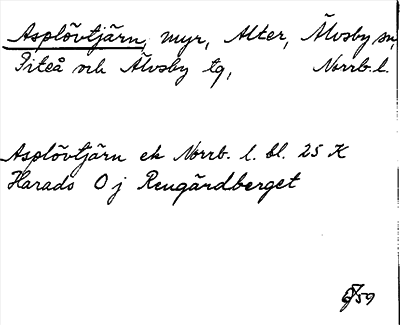 Asplövtjärn, myr, Alter, Älvsby sn,
Piteå och Älvsby tg, Norrb. l.
Asplövtjärn ek Norrb. l. bl. 25 K
Harads O j Rengårdberget
59